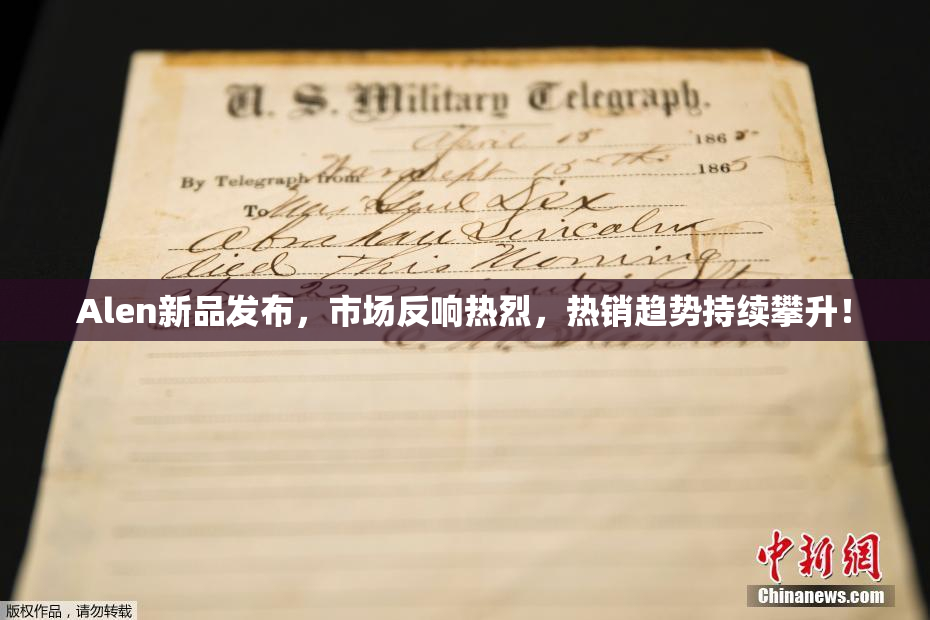 U. S. Military Telegraph.
April 15 1865
By Telegraph from War Dept 15th 1865
To Maj Genl Dix
Abraham Lincoln
died This Morning
at 22 minutes after
Alen新品发布，市场反响热烈，热销趋势持续攀升！
E. M. Stanton
中新网
Chinanews.com
版权作品，请勿转载